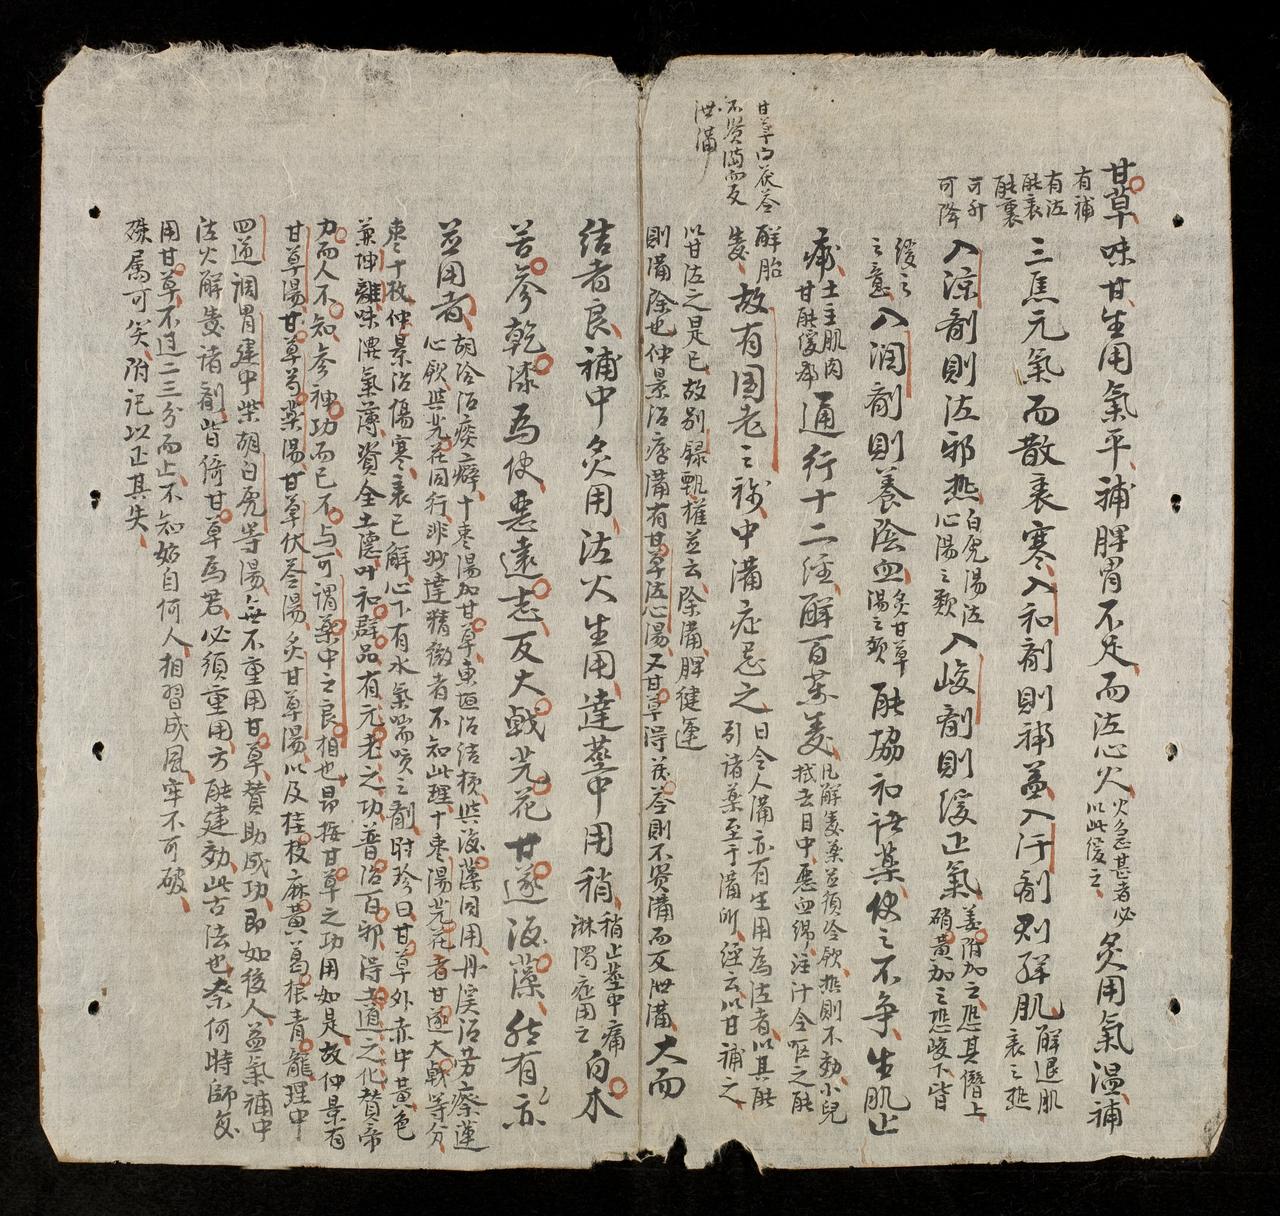 甘草
有補有泻
能表能裏
可升可降
味甘生用氣平補脾胃不足而泻心火火急甚者必以此緩之炙用氣溫補
三焦元氣而散表寒入和劑則補益入汗劑則解肌解退肌表之熱
入涼劑則泻邪熱白虎湯泻心湯之類入峻劑則緩正氣姜附加之恐其僭上硝黃加之恐峻下皆
緩之之意入潤劑則養陰血炙甘草湯之類能協和諸藥使之不争生肌止
痛土主肌肉甘能緩痛通行十二經解百藥毒凡解毒藥並須冷飲熱則不効小兒
拭去目中惡血綿注汁令嘔之能
解胎毒故有国老之稱中滿症忌之日令人滿亦有生用為泻者以其能引諸藥至于滿所經云以甘補之
以甘泻之是已故别録甄權並云除滿脾健運
則滿除也仲景治痞滿有甘草泻心湯又甘草得茯苓則不資滿而反泄滿大而
甘草白茯苓
不資滿而反
泄滿
結者良補中炙用泻火生用達莖中用稍稍止莖中痛淋濁症用之白木
苦參乾漆為使惡遠志反大戟芫花甘遂海藻然有亦
並用者胡洽治痰癖十棗湯加甘草東垣治結核與海藻同用丹溪治労瘵蓮
心飲與芫花同行非妙達精微者不知此理十棗湯芫花者甘遂大戟等分
棗十枚仲景治傷寒表已解心下有水氣喘咳之劑時珍曰甘草外赤中黃色
兼坤離味濃氣薄資全土德叶和群品有元老之功普治百邪得王道之化賛帝
力而人不知參神功而己不与可謂藥中之良相也昂按甘草之功用如是故仲景有
甘草湯甘草芍藥湯甘草伏苓湯炙甘草湯以及桂枝麻黃葛根青龍理中
四逆調胃建中柴胡白虎等湯無不重用甘草賛助成功即如後人益氣補中
泻火解毒諸劑皆倚甘草為君必須重用方能建効此古法也奈何時師每
用甘草不過二三分而止不知始自何人相習成風牢不可破
殊属可笑附記以正其失